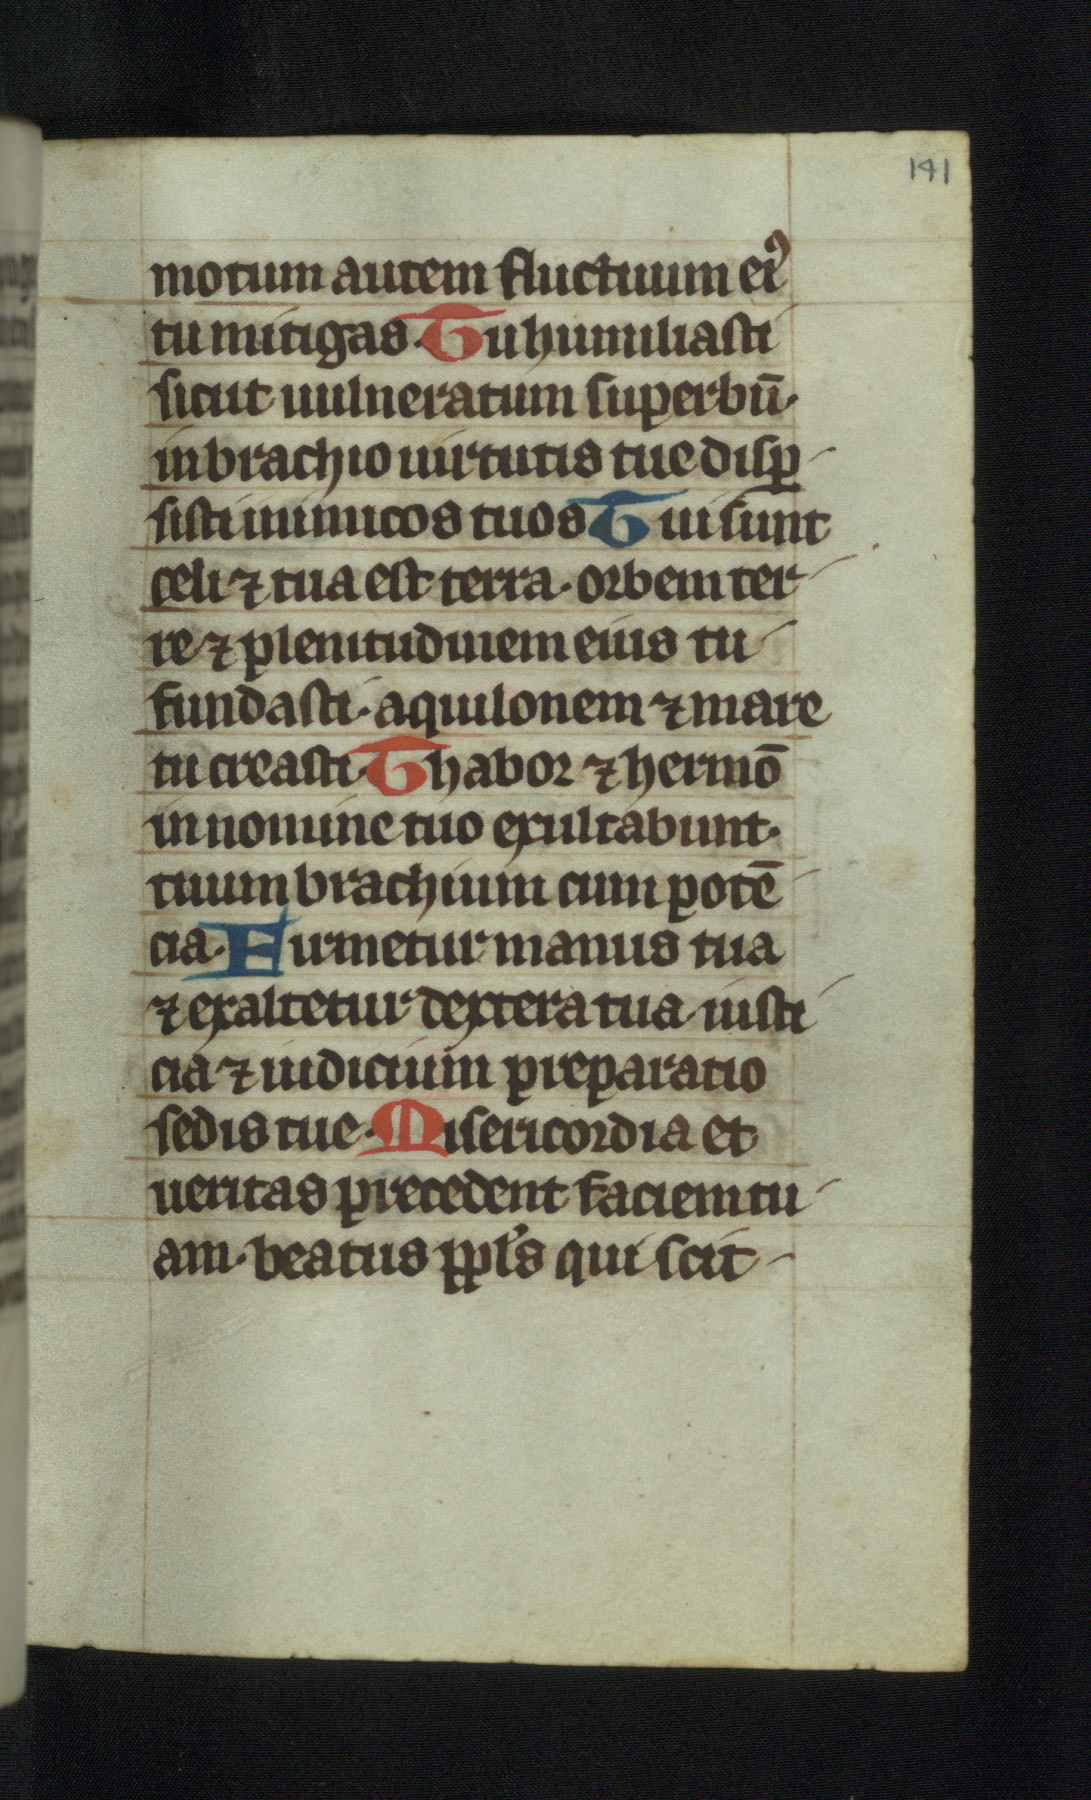 141
motum autem fluctuum ei⁹
tu mitigas. Tu humiliasti
sicut uulneratum superbū.
in brachio uirtutis tue disꝑ
sisti inimicos tuos Tui sunt
celi ⁊ tua est terra. orbem ter
re ⁊ plenitudinem eius tu
fundasti. aquilonem ⁊ mare
tu creasti. Thabor ⁊ hermō
in nomine tuo exultabunt.
tuum brachium cum potē
cia. Firmetur manus tua
⁊ exaltetur dextera tua. iusti
cia ⁊ iudicium preparatio
sedis tue. Misericordia et
ueritas precedent faciem tu
am. beatus ppl's qui scit